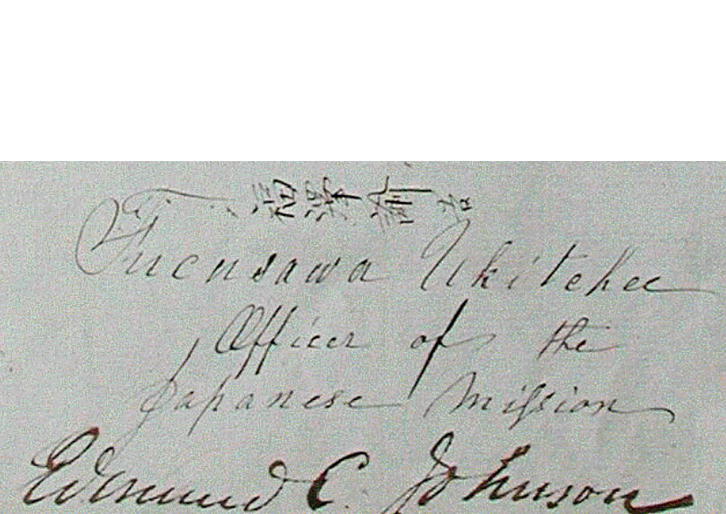 福澤諭吉
Fucusawa Ukitchee
Officer of the
Japanese Miſsion
Edmund C. Johnson